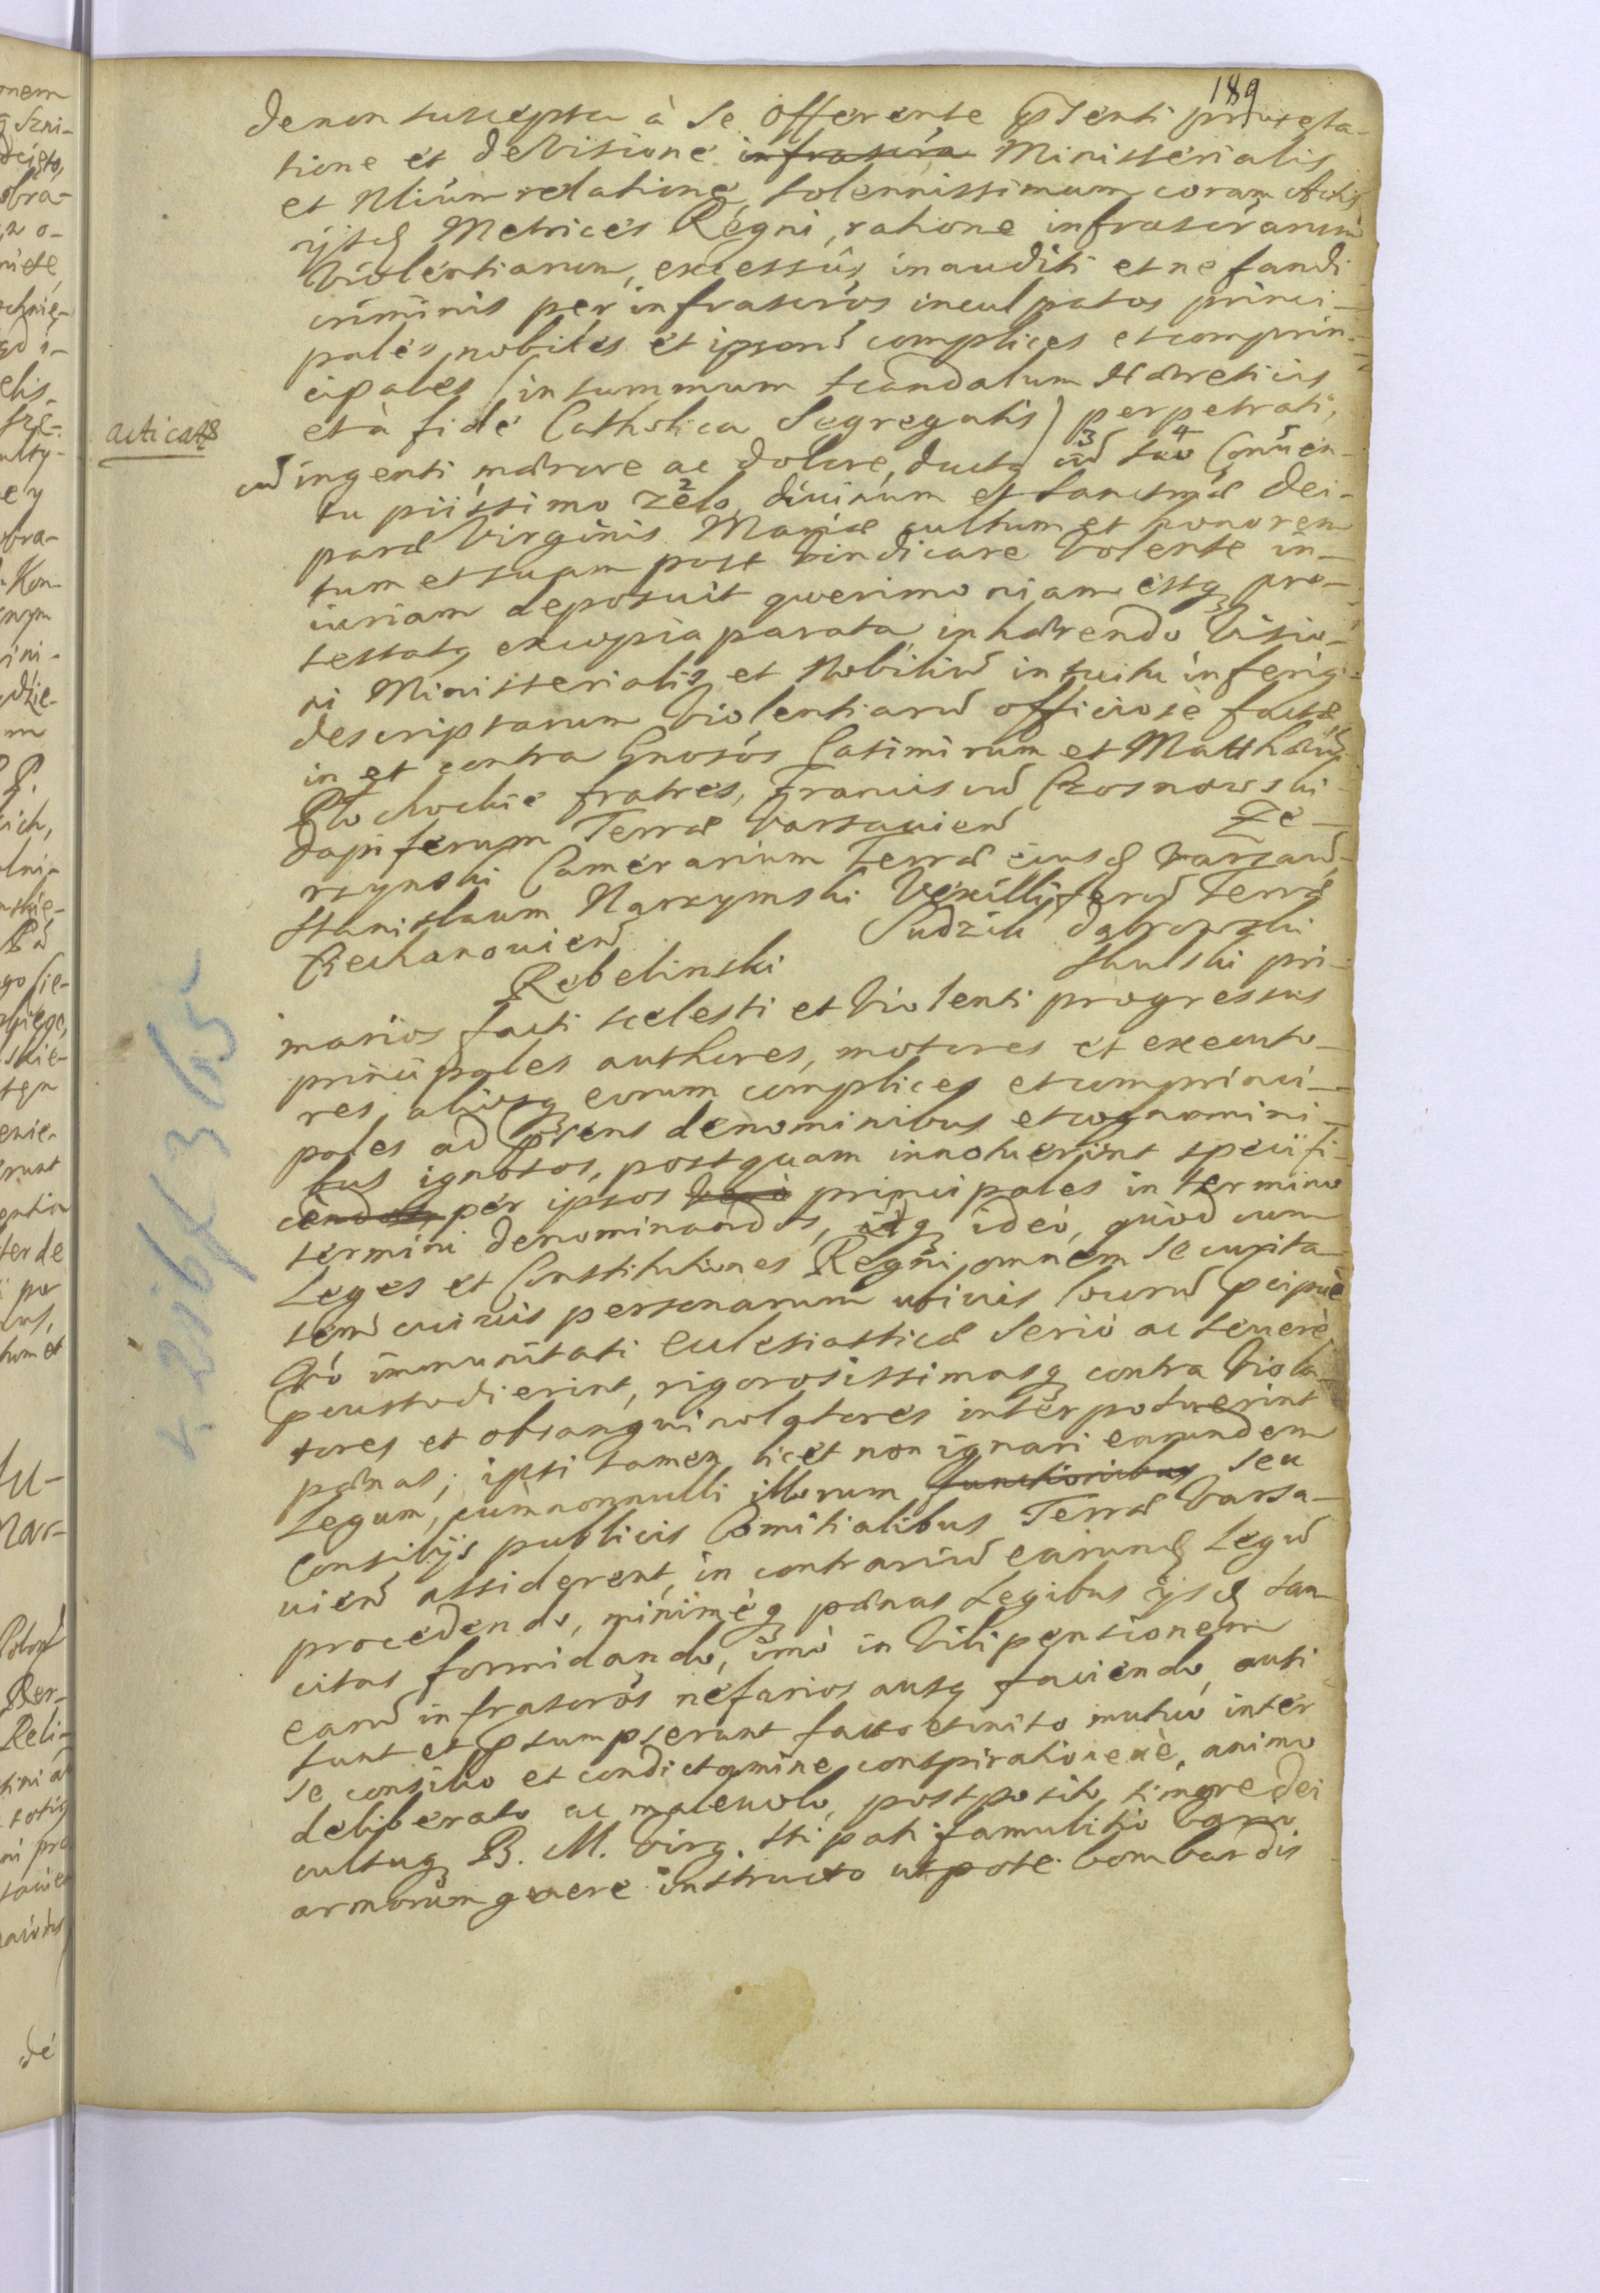 189
de non suscepta à se offerente pnti protesta-
tione et de visione infrascra Ministerialis
et Nlium relatione, solennissimam coram Actis
ijsd Metrices Regni, ratione infrascrarum
violentiarum, excessus, inauditi et nefandi
criminis per infrascros inculpatos princi-
pales, nobiles et ipsorũ complices et comprin-
cipales (in summum scandalum Hæreticis
et à fide Catholica Segregatis) perpetrati,
acticats
cũ ingenti mærore ac dolore, ductq 3 cũ suo 4 Conven-
tu piissimo 2 zelo, divinum et sanctmæ Dei-
paræ Virginis Mariæ cultum et honorem
tum et suam post vindicare volente in-
iuriam deposuit querimoniam estq pro-
testatq ex copia parata inhærendo visio-
ni Ministerialis et Nobiliũ intuitu inferiq
descriptarum violentiarũ officiose factæ
in et contra Gnosos Casimirum et Matthæum
Płochockie fratres, Franciscũ Czosnowski
dapiferum Terræ Varsavien̄ Ze-
rzynski Camerarium Terræ eiusd Varsavn̄
Stanislaum Narzymski Vexilliferũ Terræ
Ciechanovien̄ Sudzik Dąbrowski
Rebelinski Skulski pri-
marios facti scelesti et violenti progressus
principales authores, motores et executo-
res, aliosq eorum complices et comprinci-
pales ad psens de nominibus et cognomini-
bus ignotos, postquam innotuerint specifi-
candos, per ipsos vero principales in termino
termini denominandos, idq ideo, quod cum
Leges et Constitutiones Regni omnem securita-
tem cuiusvis personarum ubivis locorũ pcipue
vo immunitati ecclesiasticæ serio ac severe
pcustodierint, rigorosissimasq contra viola-
tores et obsanguinolatores interposuerint
pænas; ipsi tamen licet non ignari earundem
Legum, cum nonnulli illorum functionibus seu
Consilijs publicis Comitialibus Terræ Varsa-
vien̄ assiderent, in contrariũ earund Legũ
procedendo, minimeq pænas Legibus ijsd san-
citas formidando, imo in vilipensionem
earũ infrascros nefarios ausq faciendo, ausi
sunt et psumpserunt facto et inito mutuo inter
se consilio et condictamine conspiratione, animo
deliberato ac malevolo, postposito timore Dei
cultuq B. M. Virg. stipati famulitio vario
armorum genere instructo utpote bombardis